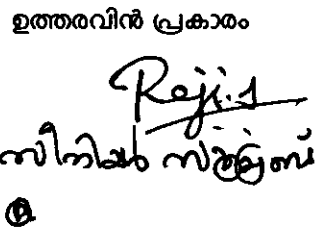 ഉത്തരവിൻ പ്രകാരം
Reji.s
സീനിയർ സൂപ്രണ്ട്